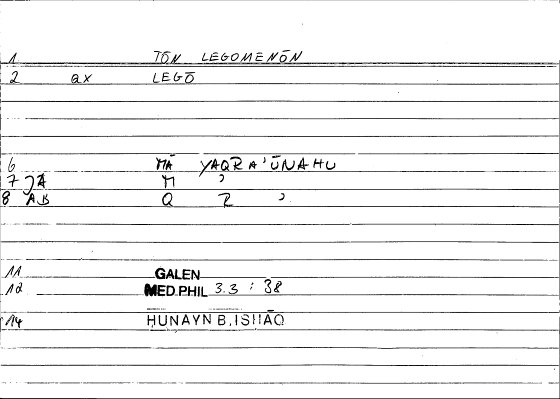 1 TŌN LEGOMENŌN
2 ax LEGŌ
6 MĀ YAQRA'ŪNAHU
7 JA M '
8 AB Q R '
11 GALEN
12 MED.PHIL 3.3 : 38
14 HUNAYN B. ISHĀQ